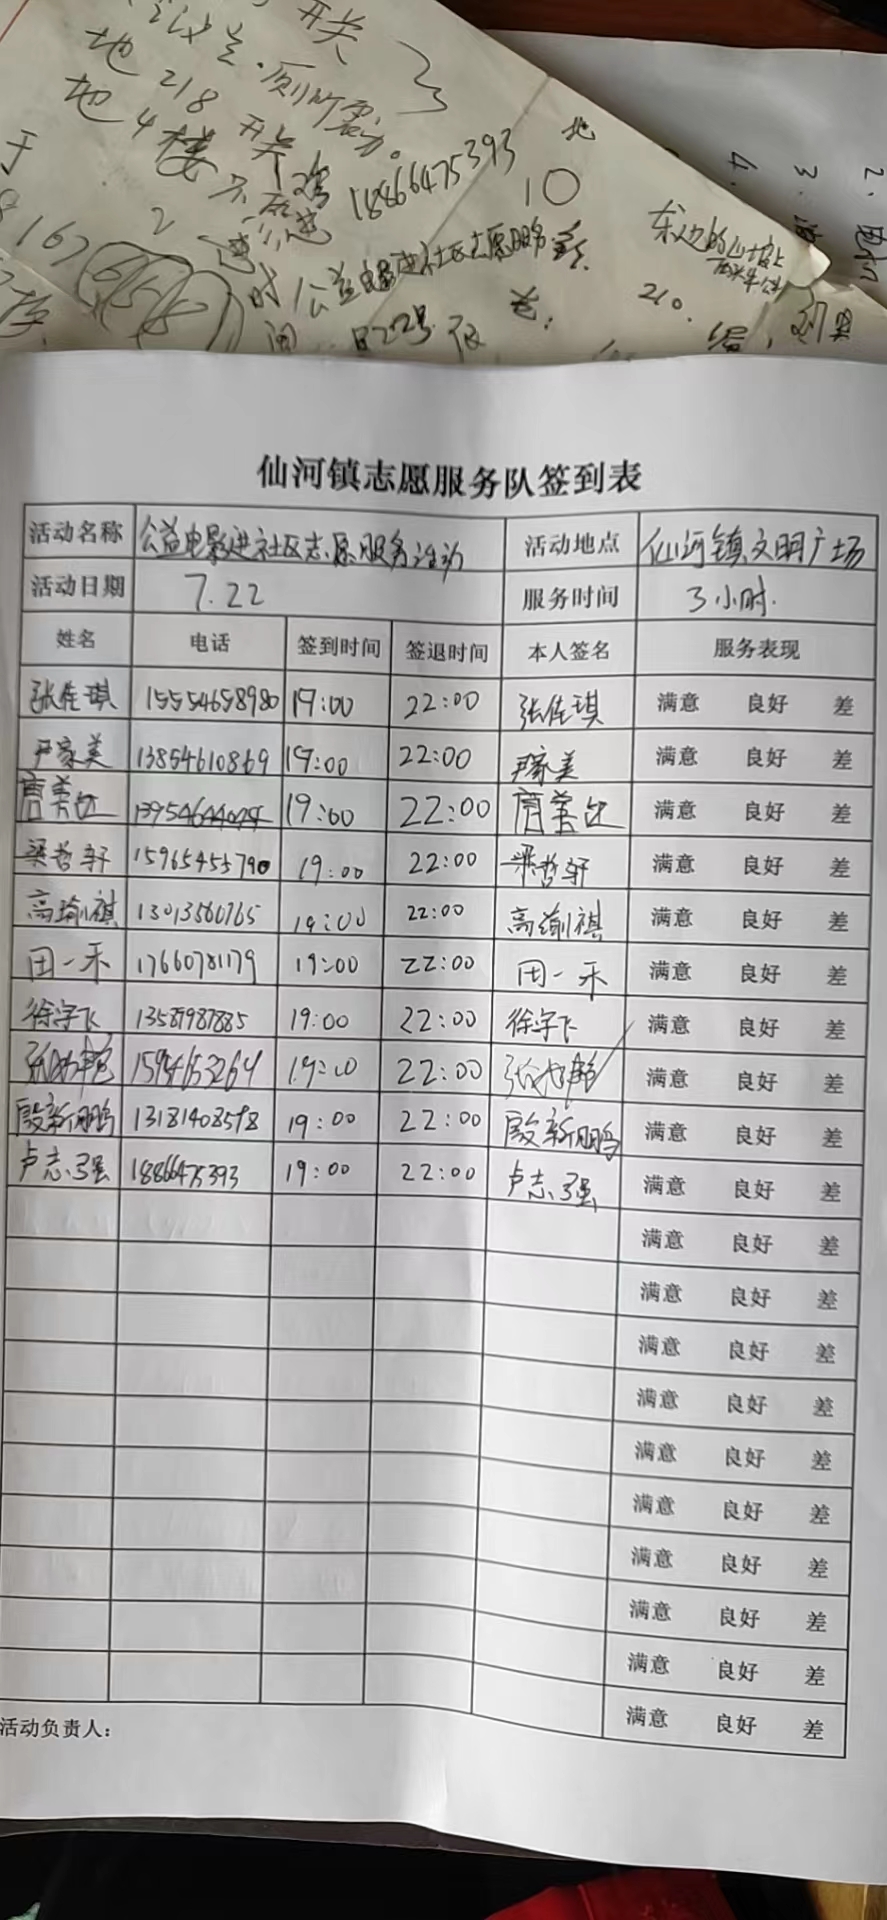 开关
地 218
地 4 楼 开关
18866475393
地
10
2
公益电影进社区志愿服务
210.
4.
3.
2.
仙河镇志愿服务队签到表
活动名称 公益电影进社区志愿服务活动 活动地点 仙河镇文明广场
活动日期 7.22 服务时间 3小时.
姓名 电话 签到时间 签退时间 本人签名 服务表现
张佳琪 15554658980 19:00 22:00 张佳琪 满意 良好 差
尹家美 13854610869 19:00 22:00 尹家美 满意 良好 差
19:00 22:00 满意 良好 差
梁哲轩 15965455790 19:00 22:00 梁哲轩 满意 良好 差
高瑜祺 13013560765 19:00 22:00 高瑜祺 满意 良好 差
田一禾 17660781179 19:00 22:00 田一禾 满意 良好 差
徐宇飞 13589987885 19:00 22:00 徐宇飞 满意 良好 差
15954653264 19:00 22:00 满意 良好 差
殷新鹏 13181408598 19:00 22:00 殷新鹏 满意 良好 差
卢志强 18866475393 19:00 22:00 卢志强 满意 良好 差
满意 良好 差
满意 良好 差
满意 良好 差
满意 良好 差
满意 良好 差
满意 良好 差
满意 良好 差
满意 良好 差
满意 良好 差
满意 良好 差
活动负责人：